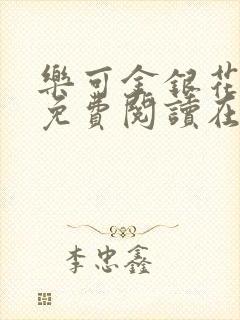 樂可金銀花
免費閱讀在
李忠鑫